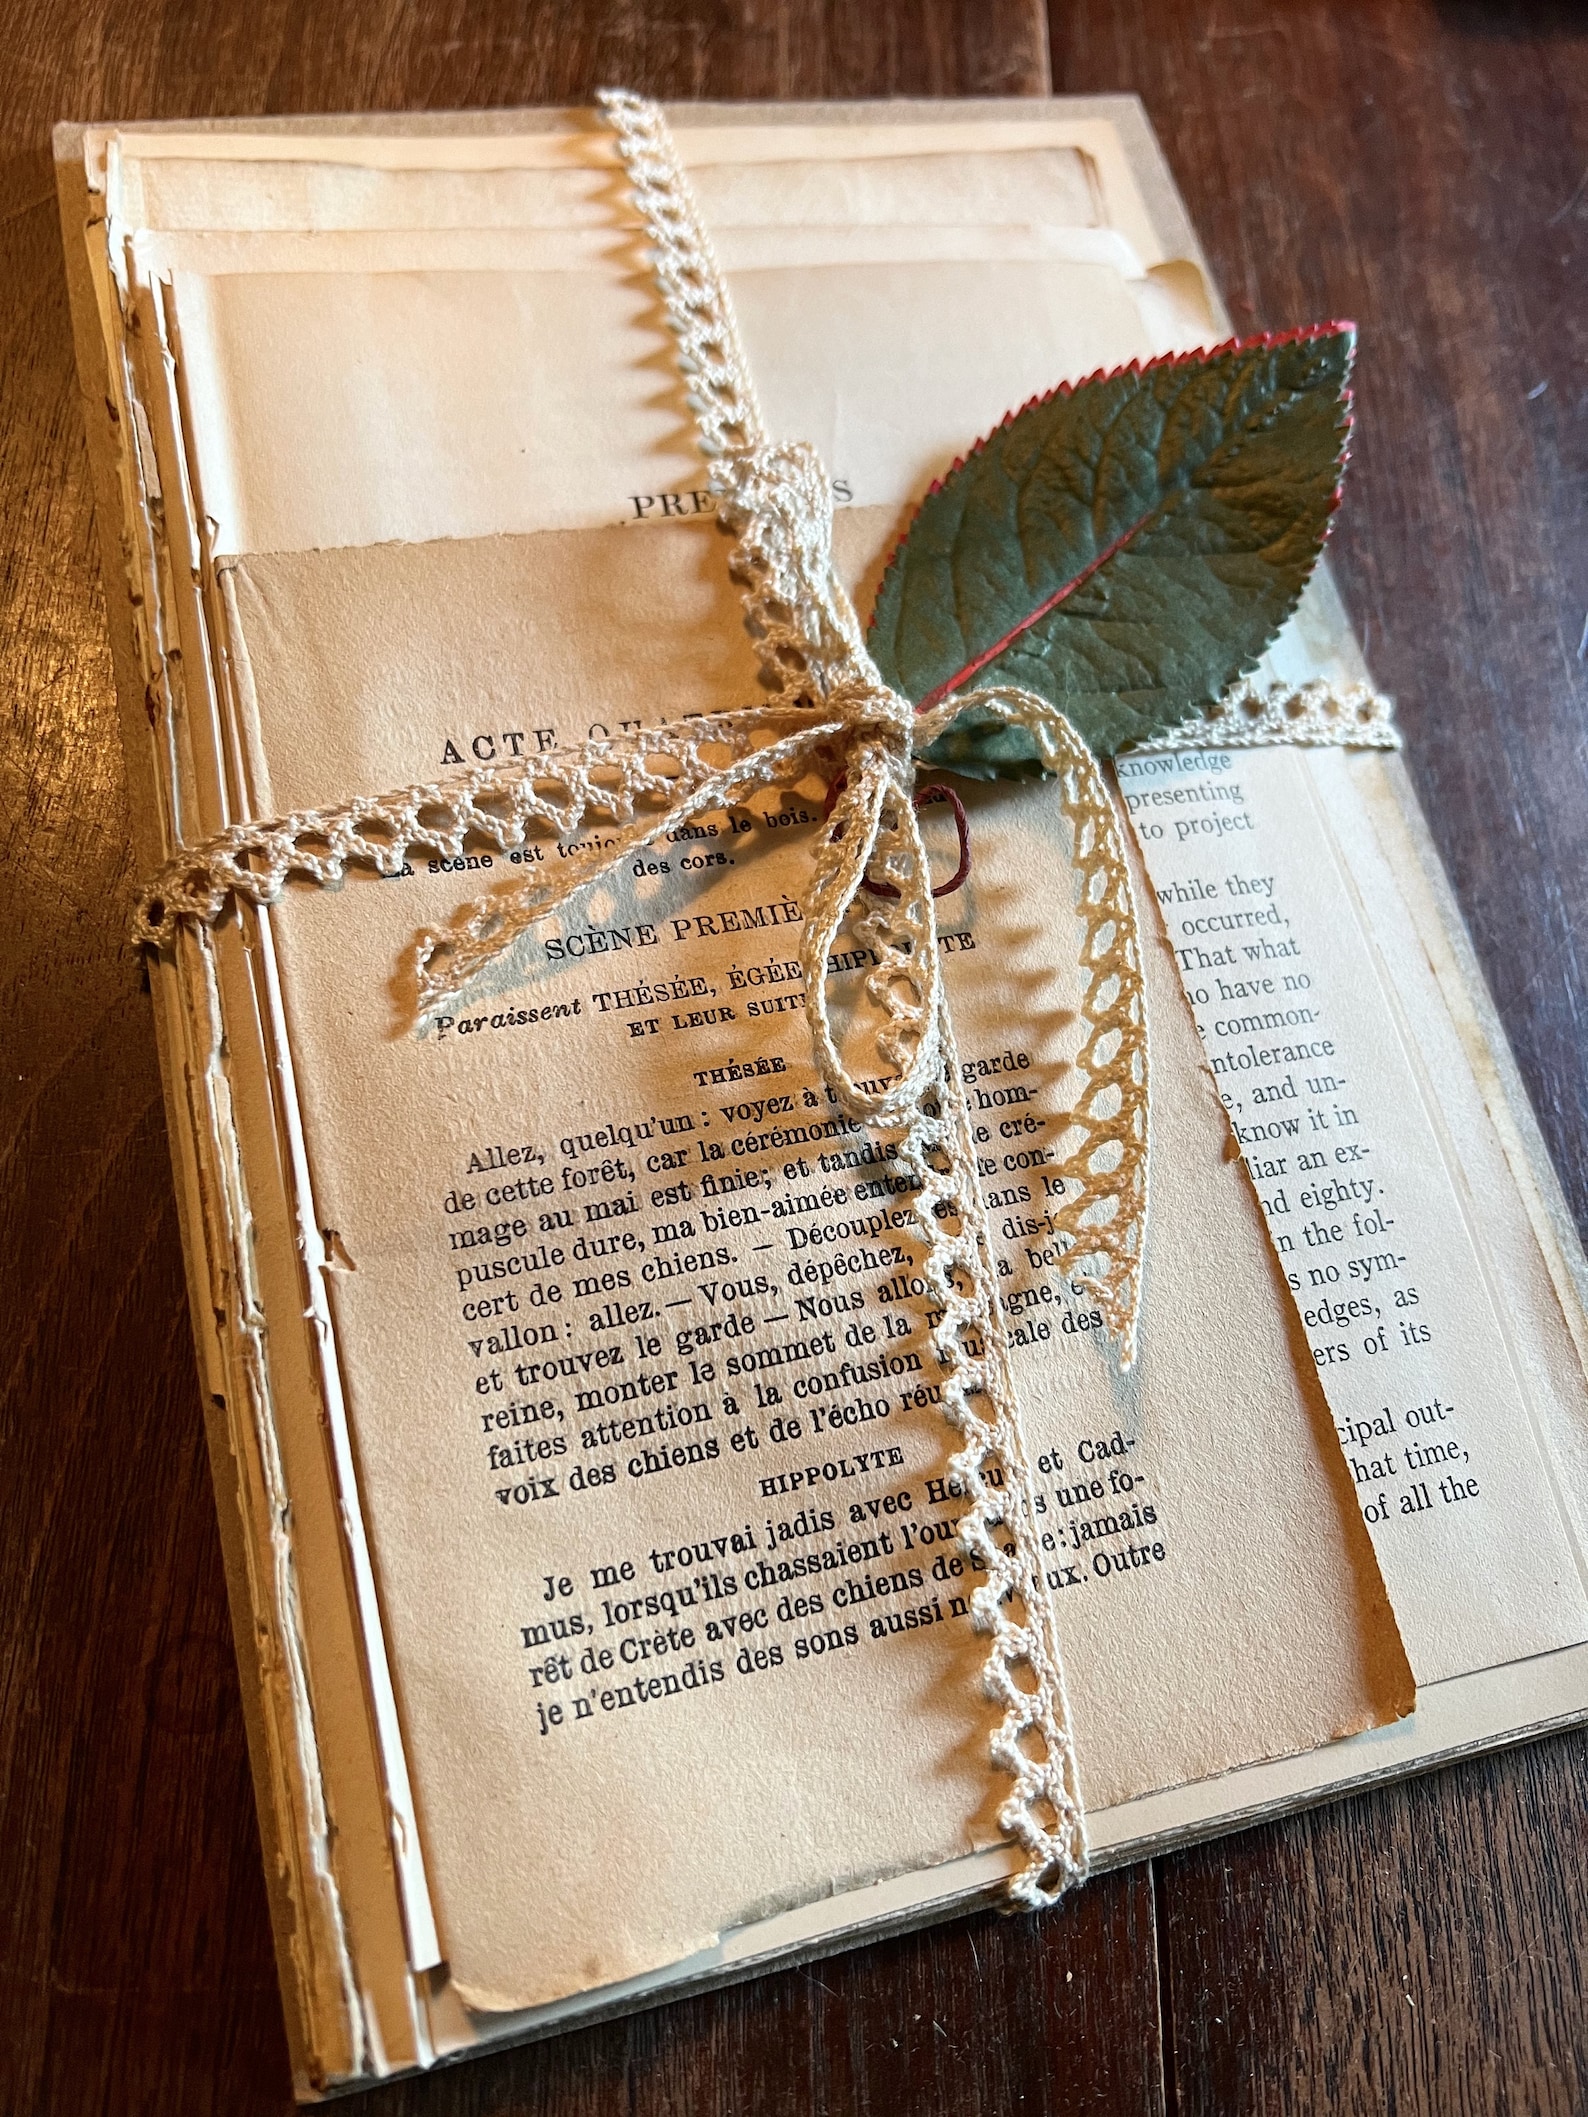 ACTE
La scène est dans le bois.
des cors.
SCÈNE
Paraissent THÉSÉE, ÉGÉE
ET LEUR
THÉSÉE
Allez, quelqu'un : voyez à garde
de cette forêt, car la cérémonie hom-
mage au mai est finie; et tandis le cré-
puscule dure, ma bien-aimée con-
cert de mes chiens. — Découplez dans le
vallon : allez. — Vous, dépêchez, dis-je
et trouvez le garde — Nous
reine, monter le sommet de la
faites attention à la confusion des
voix des chiens et de l'écho
HIPPOLYTE
Je me trouvai jadis avec et Cad-
mus, lorsqu'ils chassaient une fo-
rêt de Crète avec des chiens de : jamais
je n'entendis des sons aussi Outre
knowledge
presenting
to project
while they
occurred,
That what
have no
common-
intolerance
and un-
know it in
an ex-
eighty.
the fol-
no sym-
edges, as
of its
out-
time,
of all the